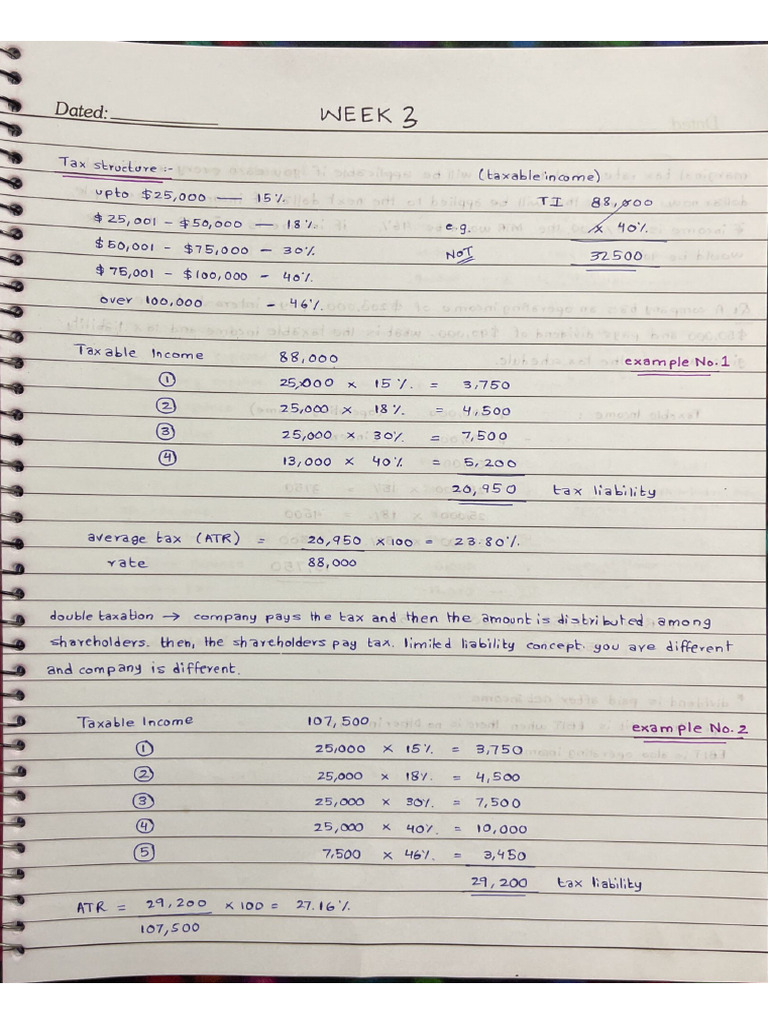 Dated:
WEEK 3
Tax structure :-
(taxable income)
upto $25,000 — 15%
TI 88,000
$25,001 – $50,000 — 18%
e.g. x 40%
$50,001 – $75,000 – 30%
NOT 32500
$75,001 – $100,000 – 40%
over 100,000 – 46%
Taxable Income 88,000
example No.1
① 25,000 x 15% = 3,750
② 25,000 x 18% = 4,500
③ 25,000 x 30% = 7,500
④ 13,000 x 40% = 5,200
20,950 tax liability
average tax (ATR) = 20,950 x100 = 23.80%
rate 88,000
double taxation → company pays the tax and then the amount is distributed among
shareholders. then, the shareholders pay tax. limited liability concept. you are different
and company is different.
Taxable Income 107,500
example No. 2
① 25,000 x 15% = 3,750
② 25,000 x 18% = 4,500
③ 25,000 x 30% = 7,500
④ 25,000 x 40% = 10,000
⑤ 7,500 x 46% = 3,450
29,200 tax liability
ATR = 29,200 x 100 = 27.16%
107,500